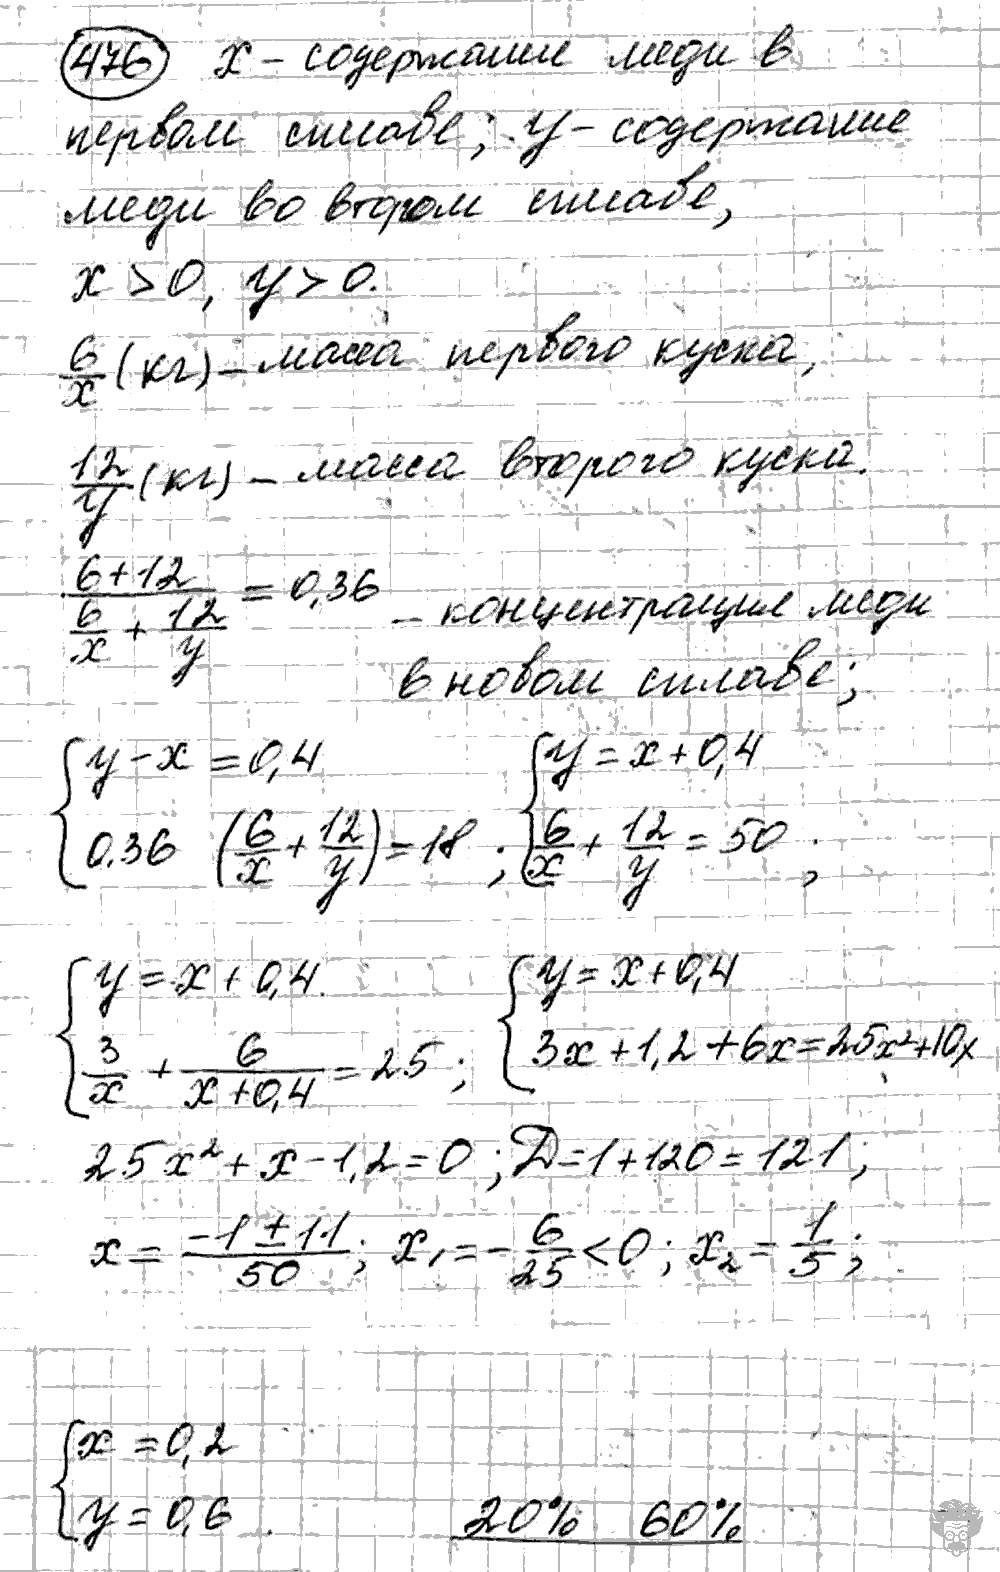 476 x – содержание меди в
первом сплаве; y – содержание
меди во втором сплаве,
x > 0, y > 0.
6/x (кг) – масса первого куска,
12/y (кг) – масса второго куска.
(6+12)/(6/x + 12/y) = 0,36 – концентрация меди
в новом сплаве;
{ y – x = 0,4 { y = x + 0,4
0.36 (6/x + 12/y) = 18 ; 6/x + 12/y = 50 ;
{ y = x + 0,4. { y = x + 0,4
3/x + 6/(x+0,4) = 25 ; 3x + 1,2 + 6x = 25x² + 10x
25x² + x – 1,2 = 0 ; D = 1 + 120 = 121 ;
x = (–1 ± 11)/50 ; x₁ = – 6/25 < 0 ; x₂ = 1/5 ;
{ x = 0,2
y = 0,6 . 20% 60%